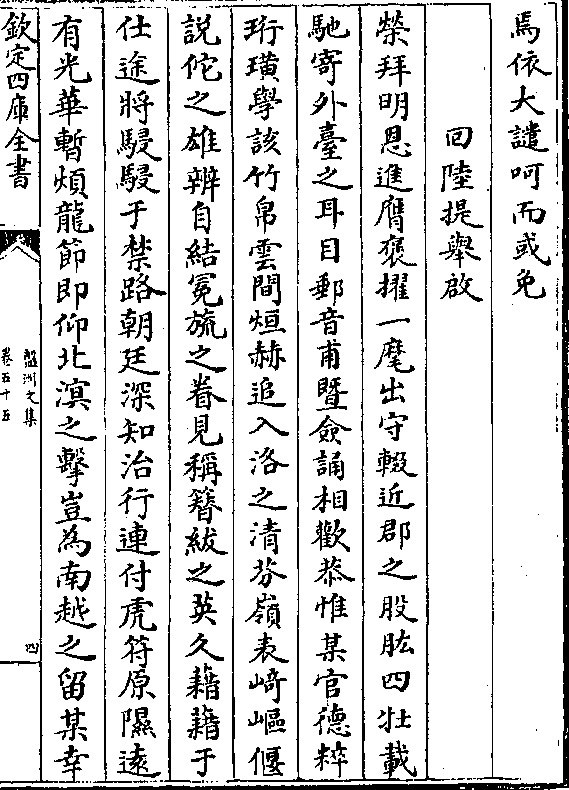 焉依大譴呵而或免
回陸提舉啟
榮拜明恩進膺褒擢一麾出守輟近郡之股肱四牡載
馳寄外臺之耳目郵音甫暨僉誦相歡恭惟某官德粹
珩璜學該竹帛雲間烜赫追入洛之清芬嶺表﨑嶇偃
說佗之雄辨自結冕旒之眷見稱簪紱之英久藉藉于
仕途將駸駸于禁路朝廷深知治行連付虎符原隰遠
有光華暫煩龍節即仰北溟之擊豈為南越之留某幸
欽定四庫全書
盤洲文集
卷五十五
四